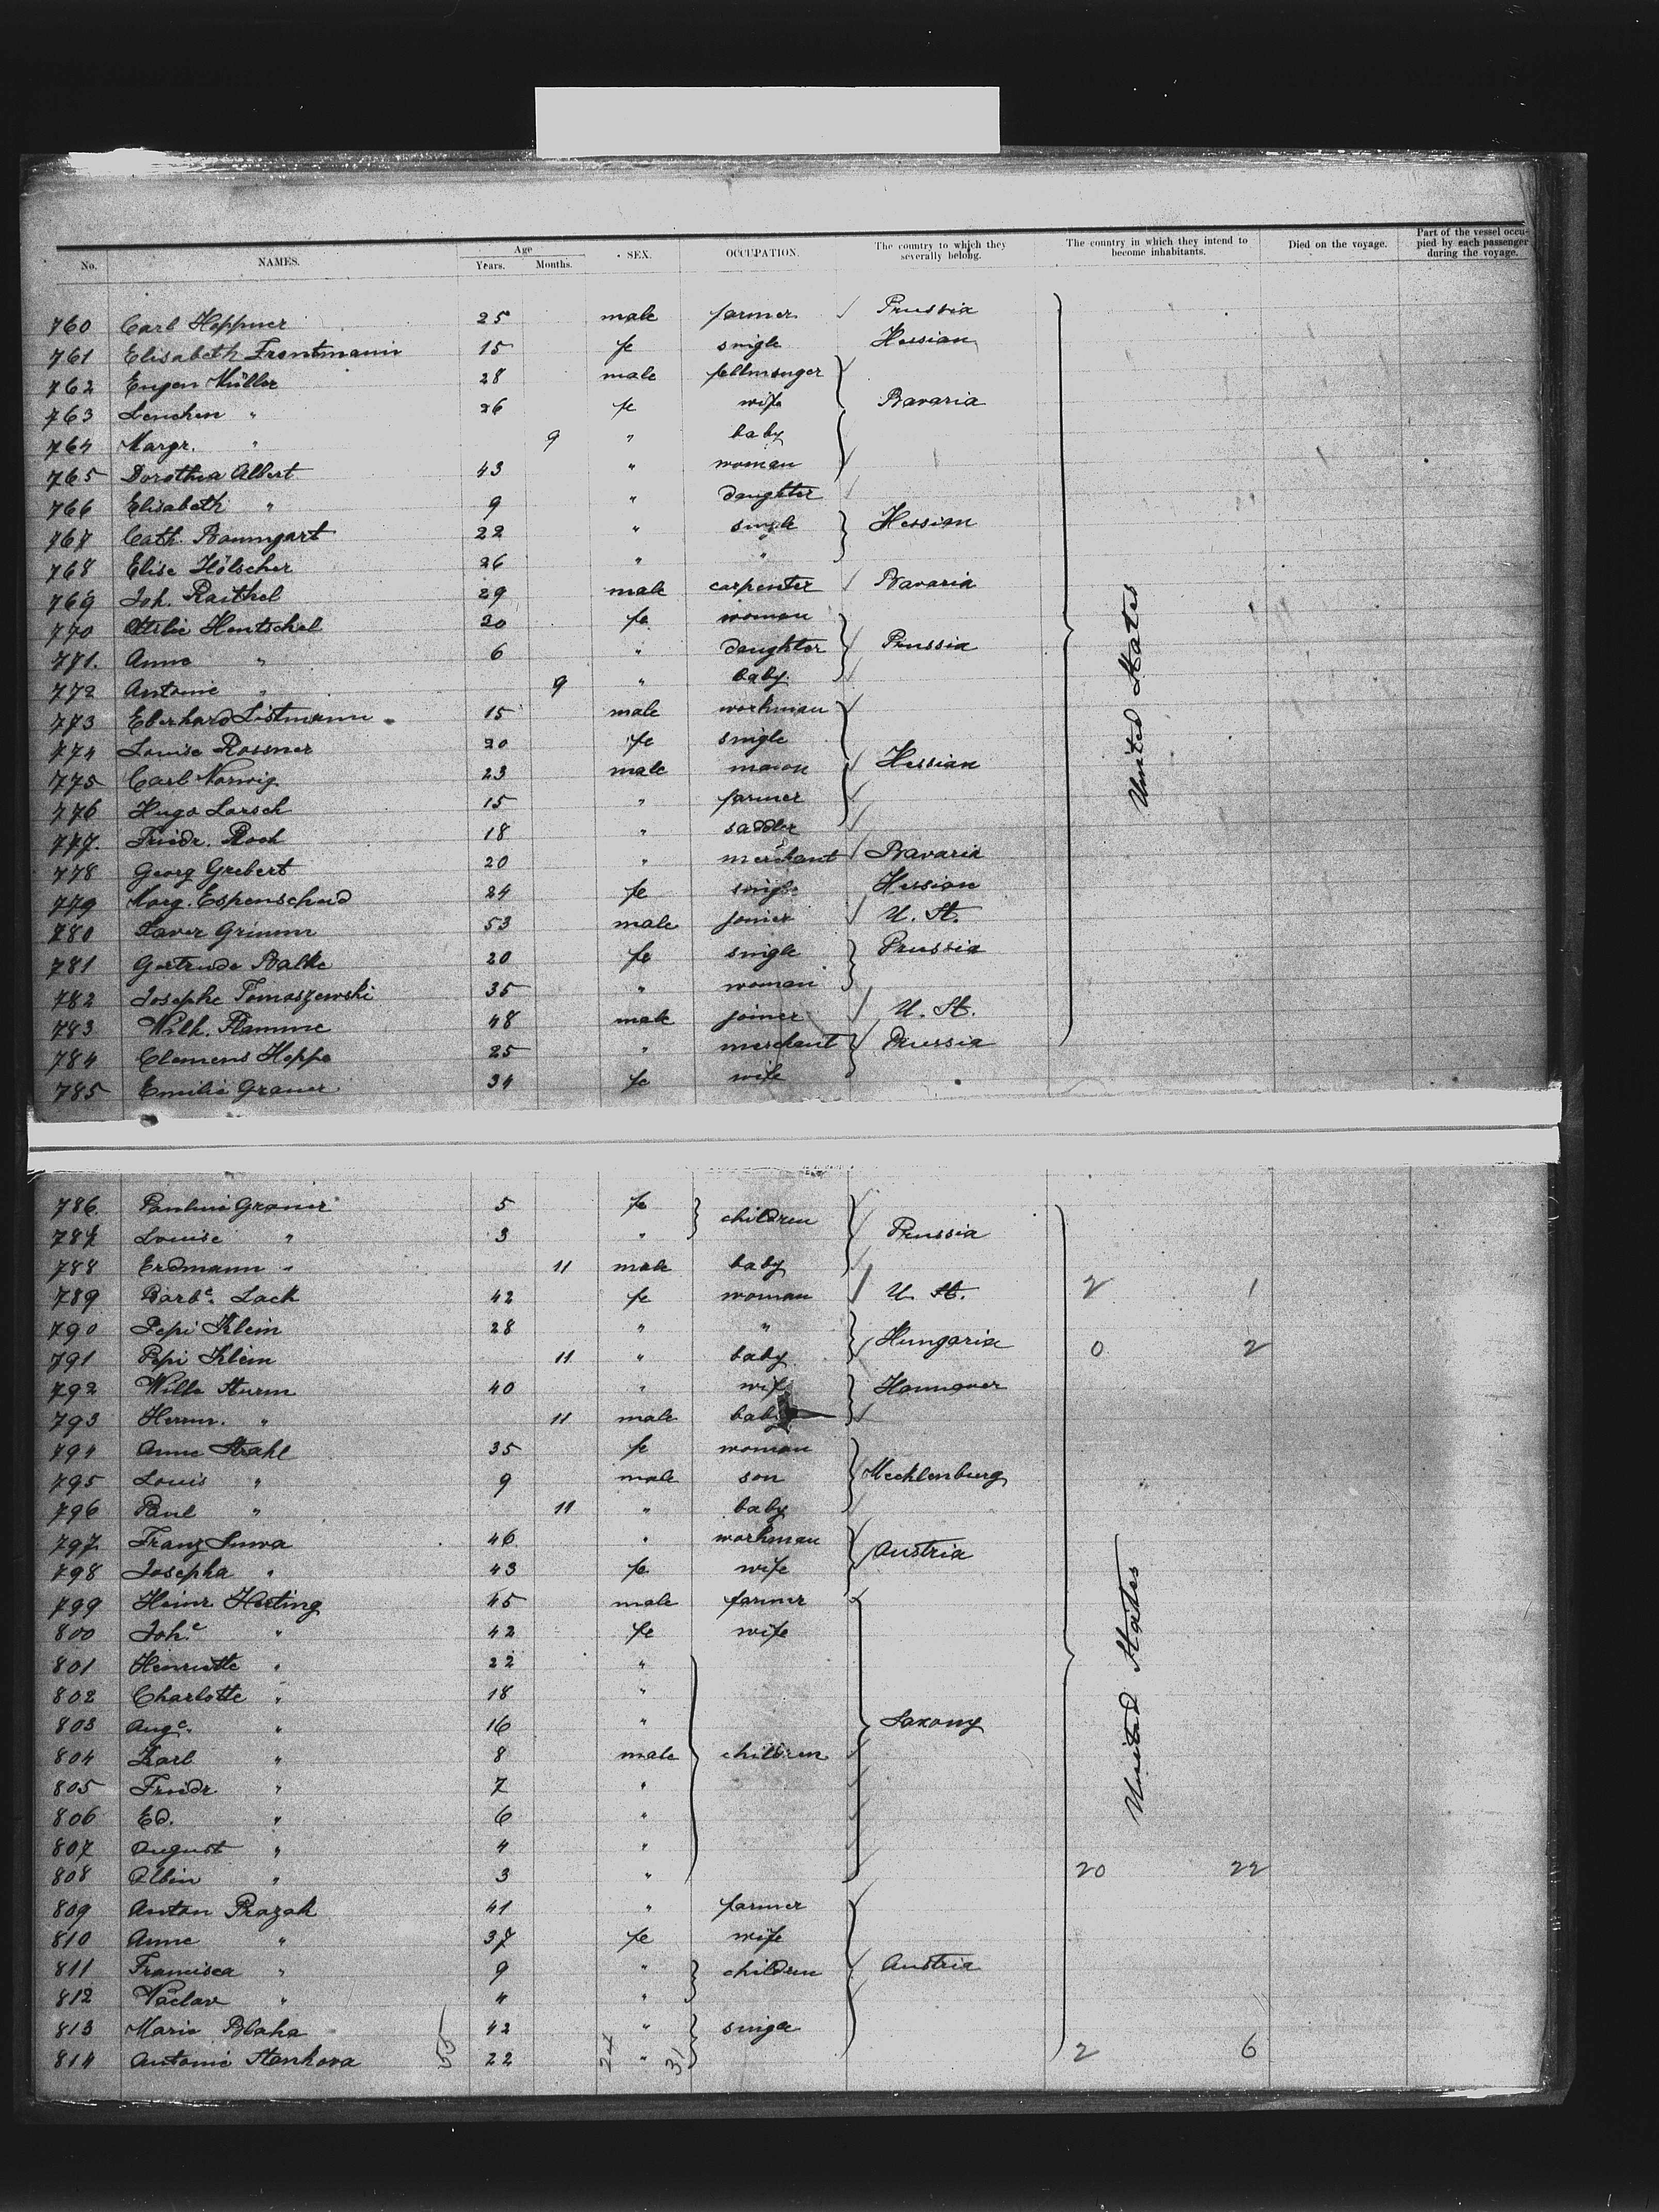 No. NAMES. Age Years. Months. SEX. OCCUPATION. The country to which they severally belong. The country in which they intend to become inhabitants. Died on the voyage. Part of the vessel occupied by each passenger during the voyage.
760 Carl Hoppner 25 male farmer Prussia
761 Elisabeth Frontmann 15 fe single Hessian
762 Eugen Müller 28 male fellmonger
763 Lenchen " 26 fe wife Bavaria
764 Margr. " 9 " baby
765 Dorothea Albert 43 " woman
766 Elisabeth " 9 " daughter
767 Cath. Baumgart 22 " single Hessian
768 Elise Hölscher 26 " "
769 Joh. Raithel 29 male carpenter Bavaria
770 Ottilie Hentschel 30 fe woman
771. Anna " 6 " daughter Prussia
772 Antonie " 9 " baby
773 Eberhard Listmann 15 male workman
774 Louise Rossner 20 fe single
775 Carl Norwig 23 male mason Hessian
776 Hugo Lorsch 15 " farmer
777. Friedr. Koch 18 " saddler
778 Georg Grebert 20 " merchant Bavaria
779 Marg. Espenschied 24 fe single Hessian
780 Xaver Grimm 53 male joiner U. St.
781 Gertrude Balke 20 fe single Prussia
782 Josephe Tomaszewski 35 " woman
783 Wilh. Flamme 48 male joiner U. St.
784 Clemens Hoppe 25 " merchant Prussia
785 Emilie Graner 34 fe wife
United States
786. Pauline Graner 5 fe children
787 Louise " 3 " Prussia
788 Erdmann " 11 male baby
789 Barb.e Lack 42 fe woman U. St. 2 1
790 Pepi Klein 28 " "
791 Pepi Klein 11 " baby Hungaria 0 2
792 Wilh. Sturm 40 " wife Hannover
793 Herm. " 11 male baby
794 Anne Strahl 35 fe woman
795 Louis " 9 male son Mecklenburg
796 Paul " 11 " baby
797. Franz Suwa 46 " workman
798 Josepha " 43 fe wife Austria
799 Heinr Herting 45 male farmer
800 Joh.e " 42 fe wife
801 Henriette " 22 "
802 Charlotte " 18 "
803 Aug.e " 16 " Saxony
804 Karl " 8 male children
805 Friedr " 7 "
806 Ed. " 6 "
807 August " 4 "
808 Albin " 3 " 20 22
809 Anton Prazak 41 " farmer
810 Anna " 37 fe wife
811 Francisca " 9 " children Austria
812 Vaclav " 4 "
813 Marie Blaha 42 " single
814 Antonie Stankova 55 22 24 " 31 2 6
United States